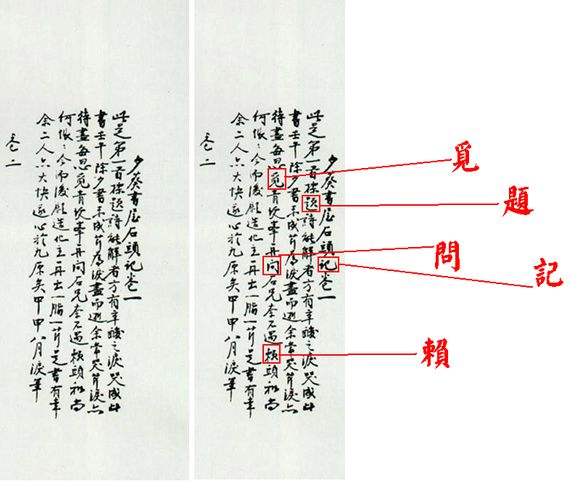 夕葵書屋石頭記卷一
此是第一首標題詩能解者方有辛酸之淚哭成此
書壬午除夕書未成芹為淚盡而逝余常哭芹淚亦
待盡每思覓青埂峯再問石兄奈不遇賴頭和尚
何悵々今而後願造化主再出一脂一芹是書有幸
余二人亦大快遂心於九原矣甲申八月淚筆
卷二
夕葵書屋石頭記卷一
此是第一首標題詩能解者方有辛酸之淚哭成此
書壬午除夕書未成芹為淚盡而逝余常哭芹淚亦
待盡每思覓青埂峯再問石兄奈不遇賴頭和尚
何悵々今而後願造化主再出一脂一芹是書有幸
余二人亦大快遂心於九原矣甲申八月淚筆
卷二
覓
題
問
記
賴